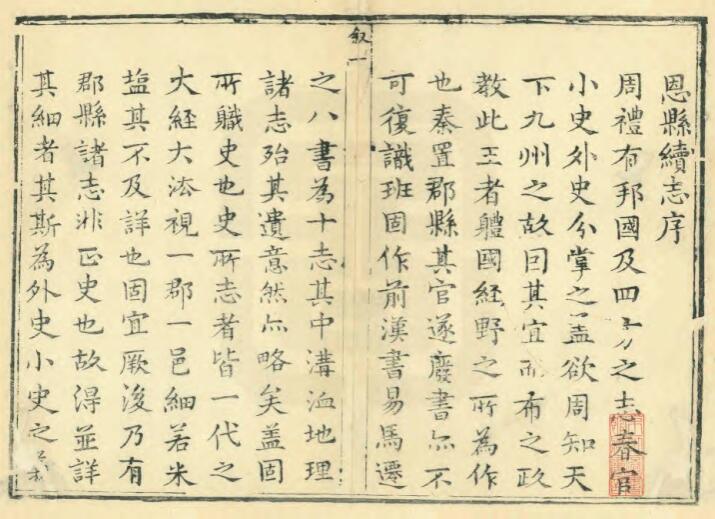 恩縣續志序
周禮有邦國及四方之志春官
小史外史分掌之盖欲周知天
下九州之故因其宜而布之政
教此王者軆國経野之所為作
也秦置郡縣其官遂廢書亦不
可復識班固作前漢書易馬遷
叙一
之八書為十志其中溝洫地理
諸志殆其遺意然亦略矣盖固
所軄史也史所志者皆一代之
大経大法視一郡一邑細若米
塩其不及詳也固宜厥後乃有
郡縣諸志非正史也故得並詳
其細者其斯為外史小史之